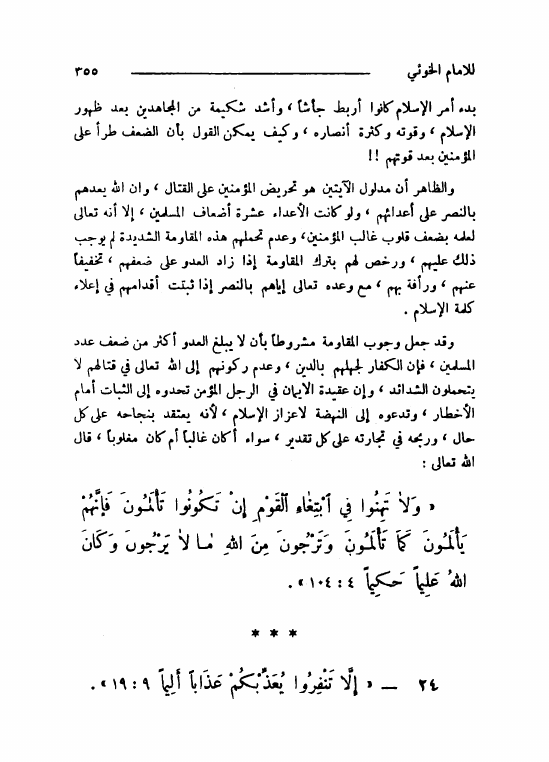 للامام الخوئي ٣٥٥
بدء أمر الإسلام كانوا أربط جأشاً ، وأشد شكيمة من المجاهدين بعد ظهور
الإسلام ، وقوته وكثرة أنصاره ، وكيف يمكن القول بأن الضعف طرأ على
المؤمنين بعد قوتهم !!
والظاهر أن مدلول الآيتين هو تحريض المؤمنين على القتال ، وان الله يعدهم
بالنصر على أعدائهم ، ولو كانت الأعداء عشرة أضعاف المسلمين ، إلا أنه تعالى
لعلمه بضعف قلوب غالب المؤمنين، وعدم تحملهم هذه المقاومة الشديدة لم يوجب
ذلك عليهم ، ورخص لهم بترك المقاومة إذا زاد العدو على ضعفهم ، تخفيفاً
عنهم ، ورأفة بهم ، مع وعده تعالى إياهم بالنصر إذا ثبتت أقدامهم في إعلاء
كلمة الإسلام .
وقد جعل وجوب المقاومة مشروطاً بأن لا يبلغ العدو أكثر من ضعف عدد
المسلمين ، فإن الكفار لجهلهم بالدين ، وعدم ركونهم إلى الله تعالى في قتالهم لا
يتحملون الشدائد ، وإن عقيدة الايمان في الرجل المؤمن تحدوه إلى الثبات أمام
الأخطار ، وتدعوه إلى النهضة لاعزاز الإسلام ، لأنه يعتقد بنجاحه على كل
حال ، وربحه في تجارته على كل تقدير ، سواء أكان غالباً أم كان مغلوباً ، قال
الله تعالى :
« وَلاَ تَهِنُوا فِي ابْتِغَاءِ الْقَوْمِ إِنْ تَكُونُوا تَأْلَمُونَ فَإِنَّهُمْ
يَأْلَمُونَ كَمَا تَأْلَمُونَ وَتَرْجُونَ مِنَ اللهِ مَا لاَ يَرْجُونَ وَكَانَ
اللهُ عَلِيماً حَكِيماً ٤ : ١٠٤ » .
* * *
٢٤ — « إِلَّا تَنْفِرُوا يُعَذِّبْكُمْ عَذَاباً أَلِيماً ٩ : ١٩ » .